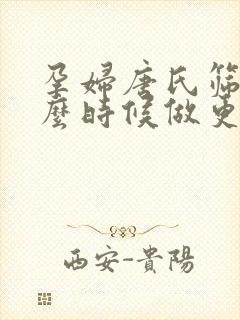 孕婦唐氏篩
麼時候做更
西安-貴陽